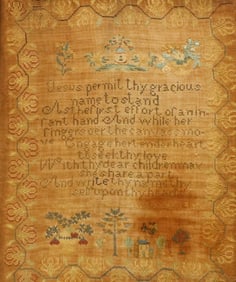 Jesus permit thy gracious
name to stand
As the first effort of an in
fant hand And while her
fingers oer the canvas mo
ve Engage her tender heart
to seek thy love
With thy dear children may
she share a part
And write thy name thy
self upon thy